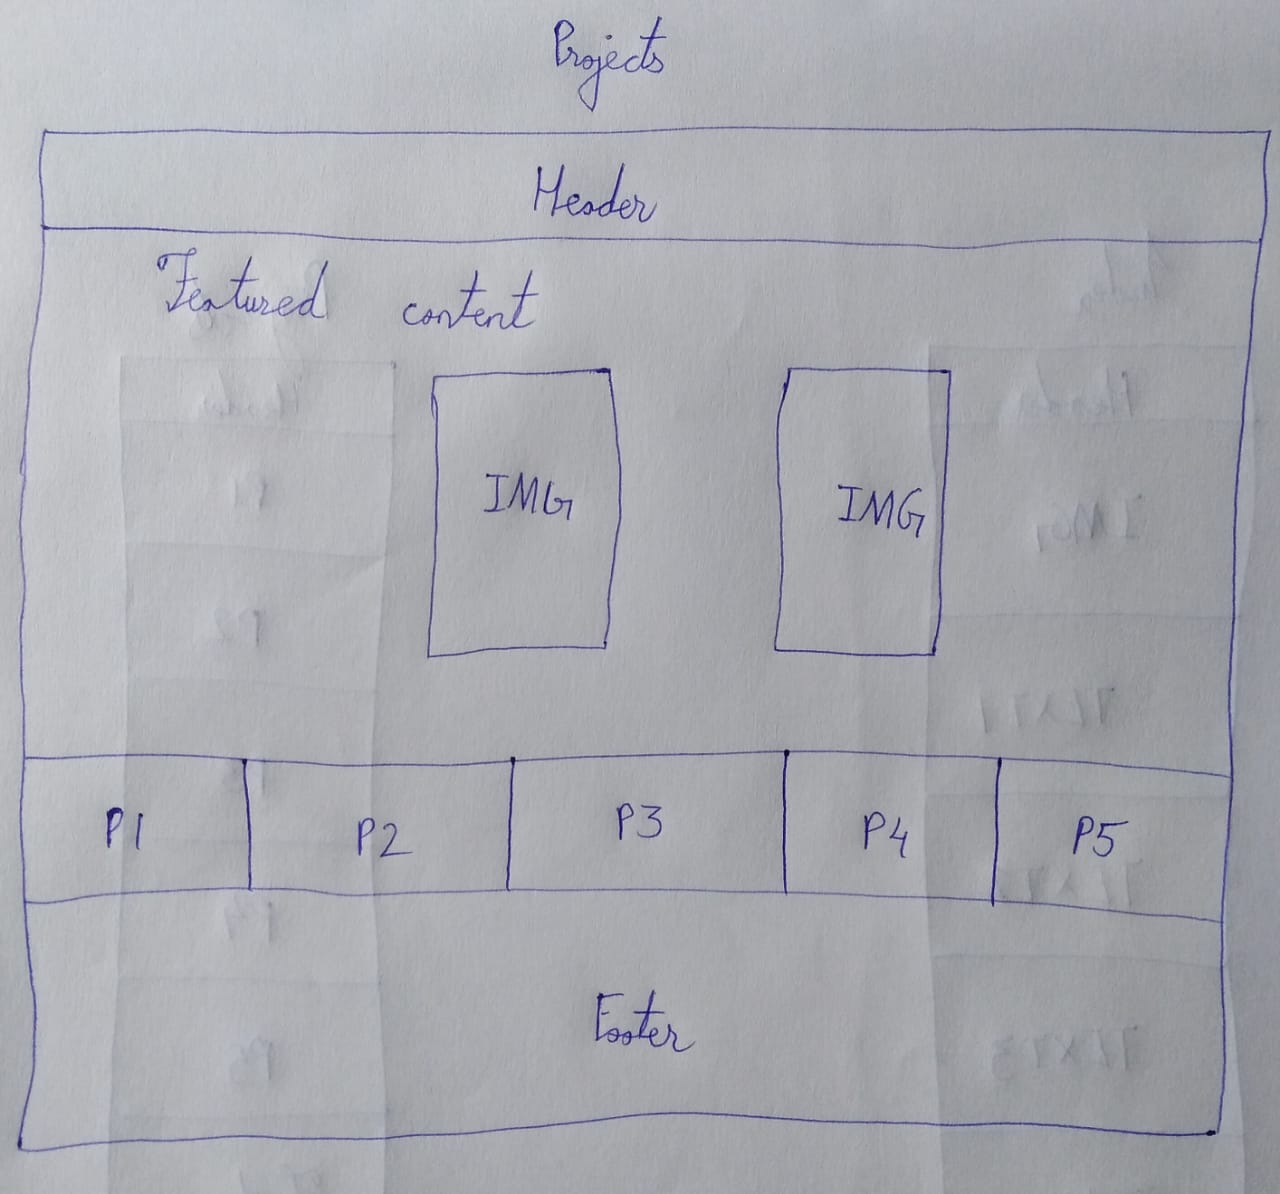 Projects
Header
Featured content
IMG IMG
P1 P2 P3 P4 P5
Footer